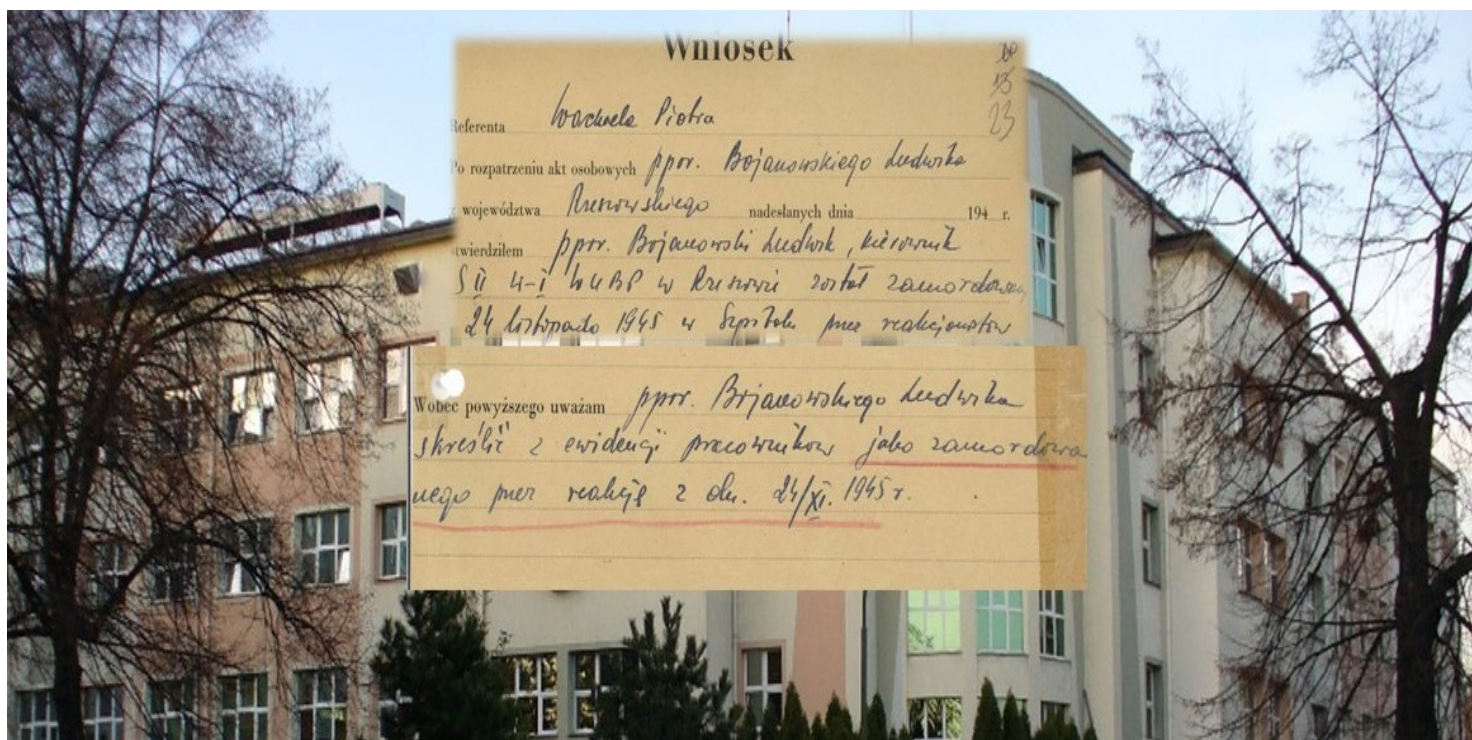 Wniosek
20
13
23
Referenta Wachela Piotra
Po rozpatrzeniu akt osobowych ppor. Bojanowskiego Ludwika
województwa Rzeszowskiego nadesłanych dnia 194 r.
stwierdziłem ppor. Bojanowski Ludwik, kierownik
S II W-I WUBP w Rzeszowie został zamordowany
24 listopada 1945 w Szpitalu przez reakcjonistów
Wobec powyższego uważam ppor. Bojanowskiego Ludwika
skreślić z ewidencji pracowników jako zamordowa
nego przez reakcję z dn. 24/XI. 1945 r.